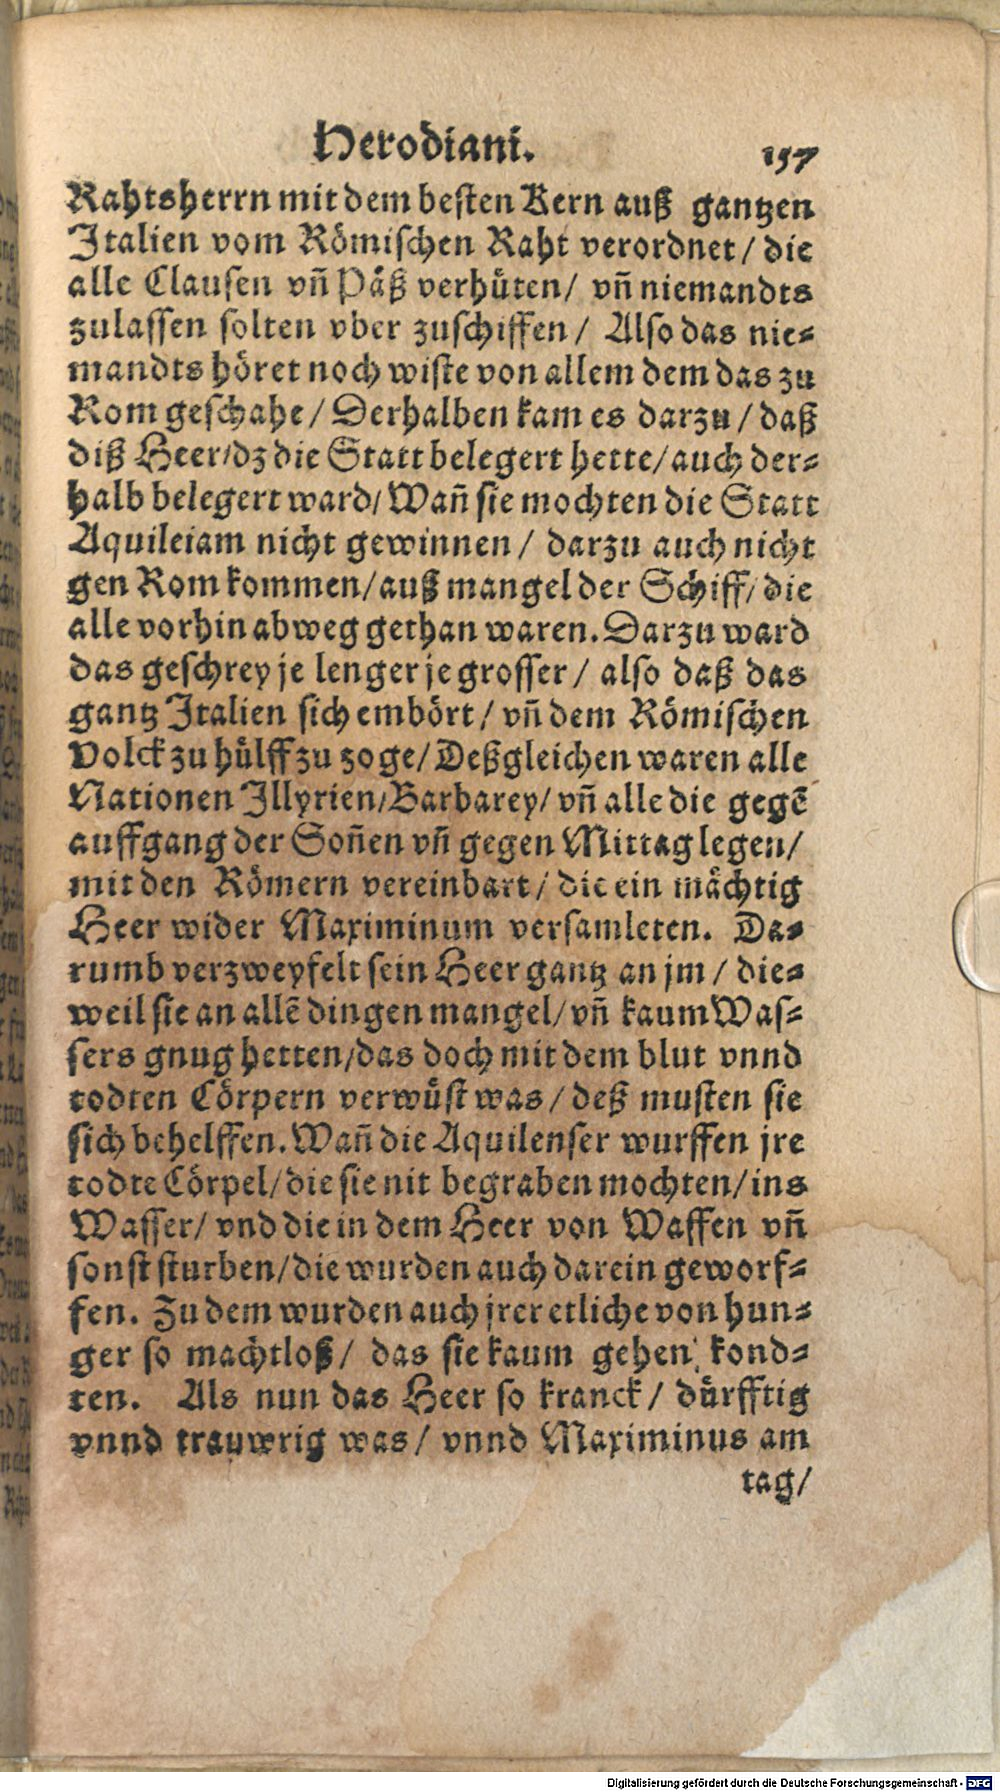 Herodiani. 157
Rahtsherrn mit dem besten Kern auß gantzen
Italien vom Römischen Raht verordnet / die
alle Clausen vñ Päß verhüten / vñ niemandts
zulassen solten vber zuschiffen / Also das nie-
mandts höret noch wiste von allem dem das zu
Rom geschahe / Derhalben kam es darzu / daß
diß Heer / dz die Statt belegert hette / auch der-
halb belegert ward / Wañ sie mochten die Statt
Aquileiam nicht gewinnen / darzu auch nicht
gen Rom kommen / auß mangel der Schiff / die
alle vorhin abweg gethan waren. Darzu ward
das geschrey je lenger je grosser / also daß das
gantz Italien sich embört / vñ dem Römischen
Volck zu hülff zu zoge / Deßgleichen waren alle
Nationen Illyrien / Barbarey / vñ alle die gegē
auffgang der Soñen vñ gegen Mittag legen /
mit den Römern vereinbart / die ein mächtig
Heer wider Maximinum versamleten. Da-
rumb verzweyfelt sein Heer gantz an jm / die-
weil sie an allē dingen mangel / vñ kaum Was-
sers gnug hetten / das doch mit dem blut vnnd
todten Cörpern verwüst was / deß musten sie
sich behelffen. Wañ die Aquilenser wurffen jre
todte Cörpel / die sie nit begraben mochten / ins
Wasser / vnd die in dem Heer von Waffen vñ
sonst sturben / die wurden auch darein geworf-
fen. Zu dem wurden auch jrer etliche von hun-
ger so machtloß / das sie kaum gehen kond-
ten. Als nun das Heer so kranck / dürfftig
vnnd trauwrig was / vnnd Maximinus am
tag /
Digitalisierung gefördert durch die Deutsche Forschungsgemeinschaft - DFG